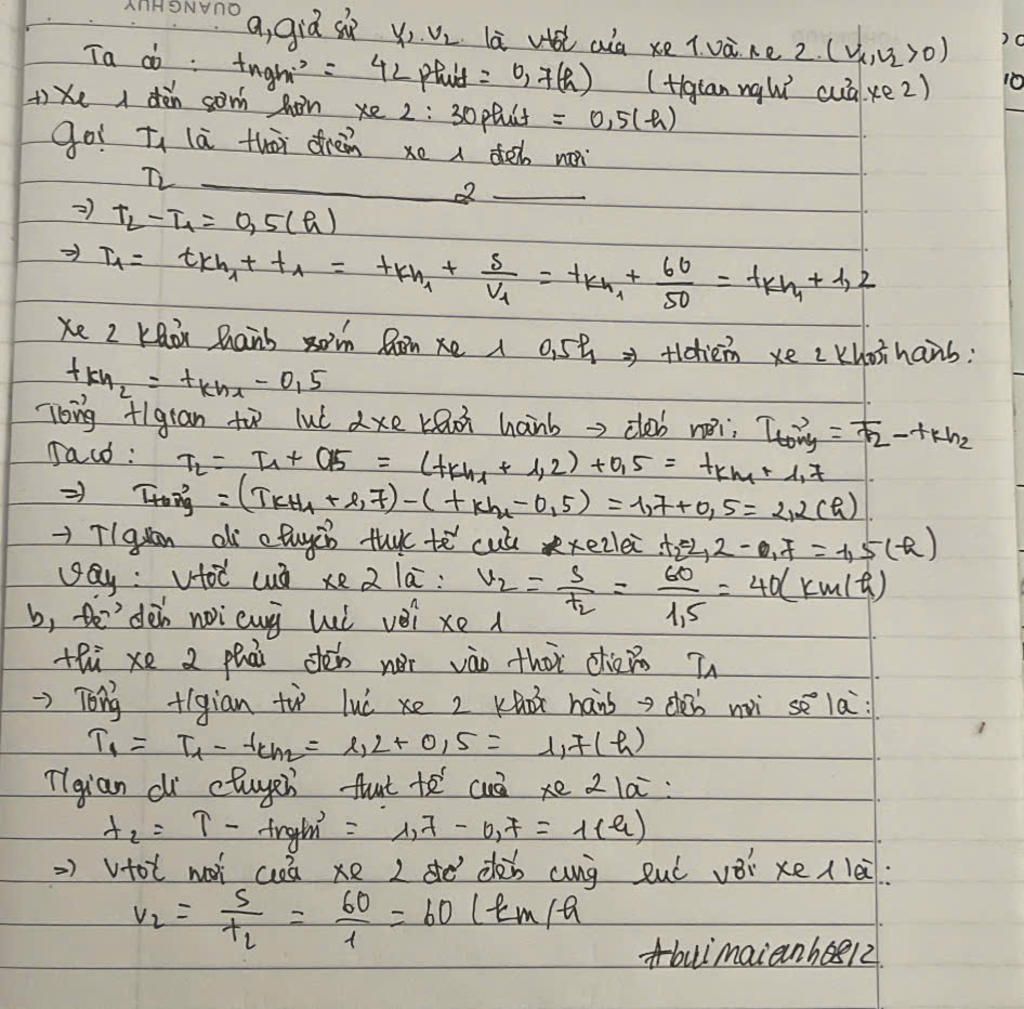 QUANG HUY
a, giả sử v₁, v₂ là vtốc của xe 1 và xe 2. (v₁, v₂ >0)
Ta có : tnghỉ = 42 phút = 0,7(h) (t/gian nghỉ của xe 2)
→ Xe 1 đến sớm hơn xe 2 : 30 phút = 0,5(h)
Gọi T₁ là thời điểm xe 1 đến nơi
T₂ ——— 2 ———
=> T₂ - T₁ = 0,5(h)
=> T₁ = tkh₁ + t₁ = tkh₁ + S/V₁ = tkh₁ + 60/50 = tkh₁ + 1,2
Xe 2 khởi hành sớm hơn xe 1 0,5h => t/điểm xe 2 khởi hành :
tkh₂ = tkh₁ - 0,5
Tổng t/gian từ lúc 2 xe khởi hành → đến nơi: Ttổng = T₂ - tkh₂
Ta có : T₂ = T₁ + 0,5 = (tkh₁ + 1,2) + 0,5 = tkh₁ + 1,7
=> Ttổng = (Tkh₁ + 1,7) - (tkh₁ - 0,5) = 1,7 + 0,5 = 2,2(h)
→ T/gian di chuyển thực tế của xe 2 là t₂ = 2,2 - 0,7 = 1,5(h)
Vậy : vtốc của xe 2 là : v₂ = S/t₂ = 60/1,5 = 40(km/h)
b, Để đến nơi cùng lúc với xe 1
thì xe 2 phải đến nơi vào thời điểm T₁
→ Tổng t/gian từ lúc xe 2 khởi hành → đến nơi sẽ là :
T₁ = T₁ - tkh₂ = 1,2 + 0,5 = 1,7(h)
T/gian di chuyển thực tế của xe 2 là :
t₂ = T - tnghỉ = 1,7 - 0,7 = 1(h)
=> Vtốc mới của xe 2 để đến cùng lúc với xe 1 là :
v₂ = S/t₂ = 60/1 = 60 (km/h
#buimaianh6812